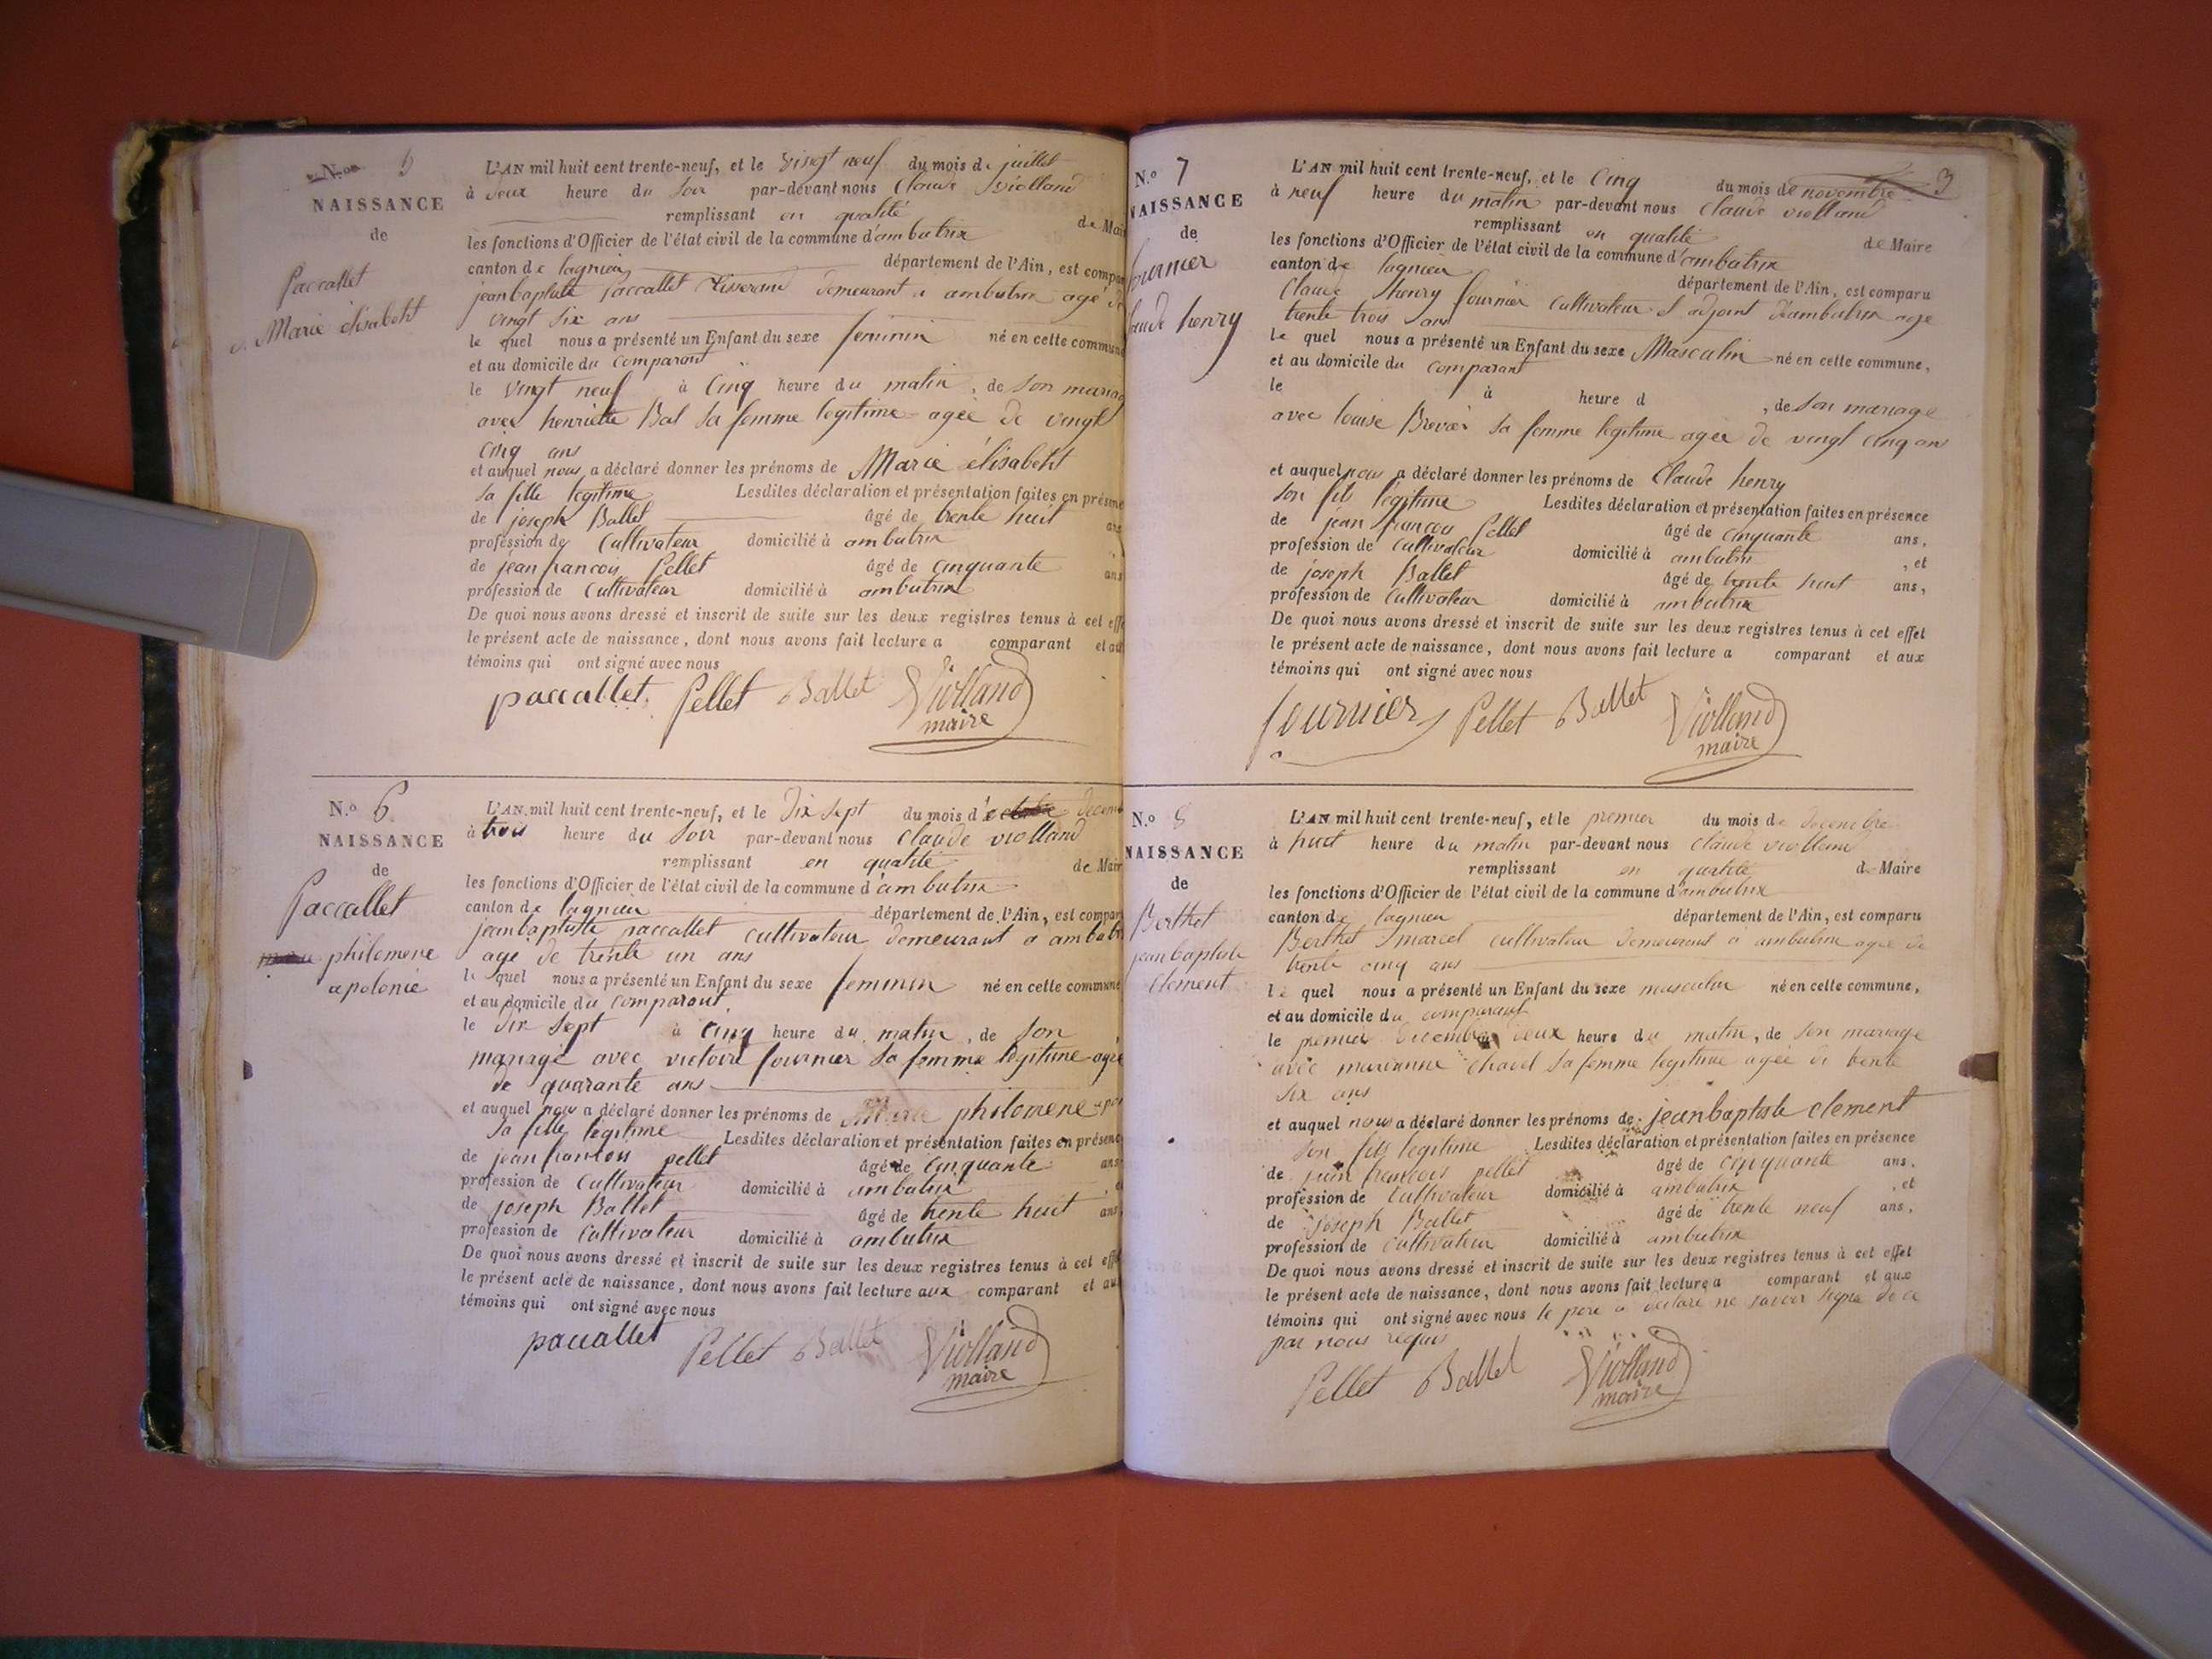 N.o 5
NAISSANCE
de
Paccallet
Marie élisabeht
L'AN mil huit cent trente-neuf, et le vingt neuf du mois de juillet
à deux heure du soir par-devant nous Claude Violland
remplissant en qualité de Mai
les fonctions d'Officier de l'état civil de la commune d'ambutrix
canton de lagnieu département de l'Ain, est compa
jean baptiste paccallet tisserand demeurant a ambutrix agé de
vingt six ans
le quel nous a présenté un Enfant du sexe feminin né en cette commune
et au domicile du comparant
le vingt neuf à cinq heure du matin, de son mariag
avec henriette Bal sa femme legitime agée de vingt
cinq ans
et auquel nous a déclaré donner les prénoms de Marie élisabeht
sa fille legitime Lesdites déclaration et présentation faites en présence
de joseph Ballet âgé de trente huit ans
profession de Cultivateur domicilié à ambutrix
de jean francois Pellet âgé de cinquante ans
profession de Cultivateur domicilié à ambutrix
De quoi nous avons dressé et inscrit de suite sur les deux registres tenus à cet effe
le présent acte de naissance, dont nous avons fait lecture a comparant et au
témoins qui ont signé avec nous
paccallet Pellet Ballet Violland
maire
N.o 6
NAISSANCE
de
Paccallet
philomene
apolonie
L'AN mil huit cent trente-neuf, et le dix sept du mois d'octobre decem
à trois heure du soir par-devant nous Claude violland
remplissant en qualité de Mair
les fonctions d'Officier de l'état civil de la commune d'ambutrix
canton de lagnieu département de l'Ain, est compar
jean baptiste paccallet cultivateur demeurant a ambutr
age de trente un ans
le quel nous a présenté un Enfant du sexe feminin né en cette commune
et au domicile du comparant
le dix sept à cinq heure du matin, de son
mariage avec victoire fournier sa femme legitime agée
de quarante ans
et auquel nous a déclaré donner les prénoms de Marie philomene apo
sa fille legitime Lesdites déclaration et présentation faites en présenc
de jean francois pellet âgé de cinquante ans
profession de Cultivateur domicilié à ambutrix
de joseph Ballet âgé de trente huit ans
profession de Cultivateur domicilié à ambutrix
De quoi nous avons dressé et inscrit de suite sur les deux registres tenus à cet effe
le présent acte de naissance, dont nous avons fait lecture aux comparant et au
témoins qui ont signé avec nous
paccallet Pellet Ballet Violland
maire
3
N.o 7
NAISSANCE
de
fournier
laude henry
L'AN mil huit cent trente-neuf, et le Cinq du mois de novembre
à neuf heure du matin par-devant nous Claude violland
remplissant en qualité de Maire
les fonctions d'Officier de l'état civil de la commune d'ambutrix
canton de lagnieu département de l'Ain, est comparu
Claude henry fournier Cultivateur et adjoint d'ambutrix age
trente trois ans
le quel nous a présenté un Enfant du sexe Masculin né en cette commune,
et au domicile du comparant
le à heure d , de son mariage
avec louise Brevier sa femme legitime agée de vingt cinq ans
et auquel nous a déclaré donner les prénoms de Claude henry
son fils legitime Lesdites déclaration et présentation faites en présence
de jean francois Pellet âgé de cinquante ans,
profession de Cultivateur domicilié à ambutrix , et
de joseph Ballet âgé de trente huit ans,
profession de Cultivateur domicilié à ambutrix
De quoi nous avons dressé et inscrit de suite sur les deux registres tenus à cet effet
le présent acte de naissance, dont nous avons fait lecture a comparant et aux
témoins qui ont signé avec nous
fournier Pellet Ballet Violland
maire
N.o 8
NAISSANCE
de
Berthet
jean baptiste
Clement
L'AN mil huit cent trente-neuf, et le premier du mois de decembre
à huit heure du matin par-devant nous Claude violland
remplissant en qualité de Maire
les fonctions d'Officier de l'état civil de la commune d'ambutrix
canton de lagnieu département de l'Ain, est comparu
Berthet marcel cultivateur demeurant a ambutrix agé de
trente cinq ans
le quel nous a présenté un Enfant du sexe masculin né en cette commune,
et au domicile du comparant
le premier decembre deux heure du matin, de son mariage
avec marianne chavel sa femme legitime agée de trente
six ans
et auquel nous a déclaré donner les prénoms de jean baptiste clement
son fils legitime Lesdites déclaration et présentation faites en présence
de jean francois pellet âgé de cinquante ans.
profession de Cultivateur domicilié à ambutrix , et
de joseph Ballet âgé de trente neuf ans,
profession de Cultivateur domicilié à ambutrix
De quoi nous avons dressé et inscrit de suite sur les deux registres tenus à cet effet
le présent acte de naissance, dont nous avons fait lecture a comparant et aux
témoins qui ont signé avec nous le pere a declaré ne savoir signe de ce
par nous requis
Pellet Ballet Violland
maire